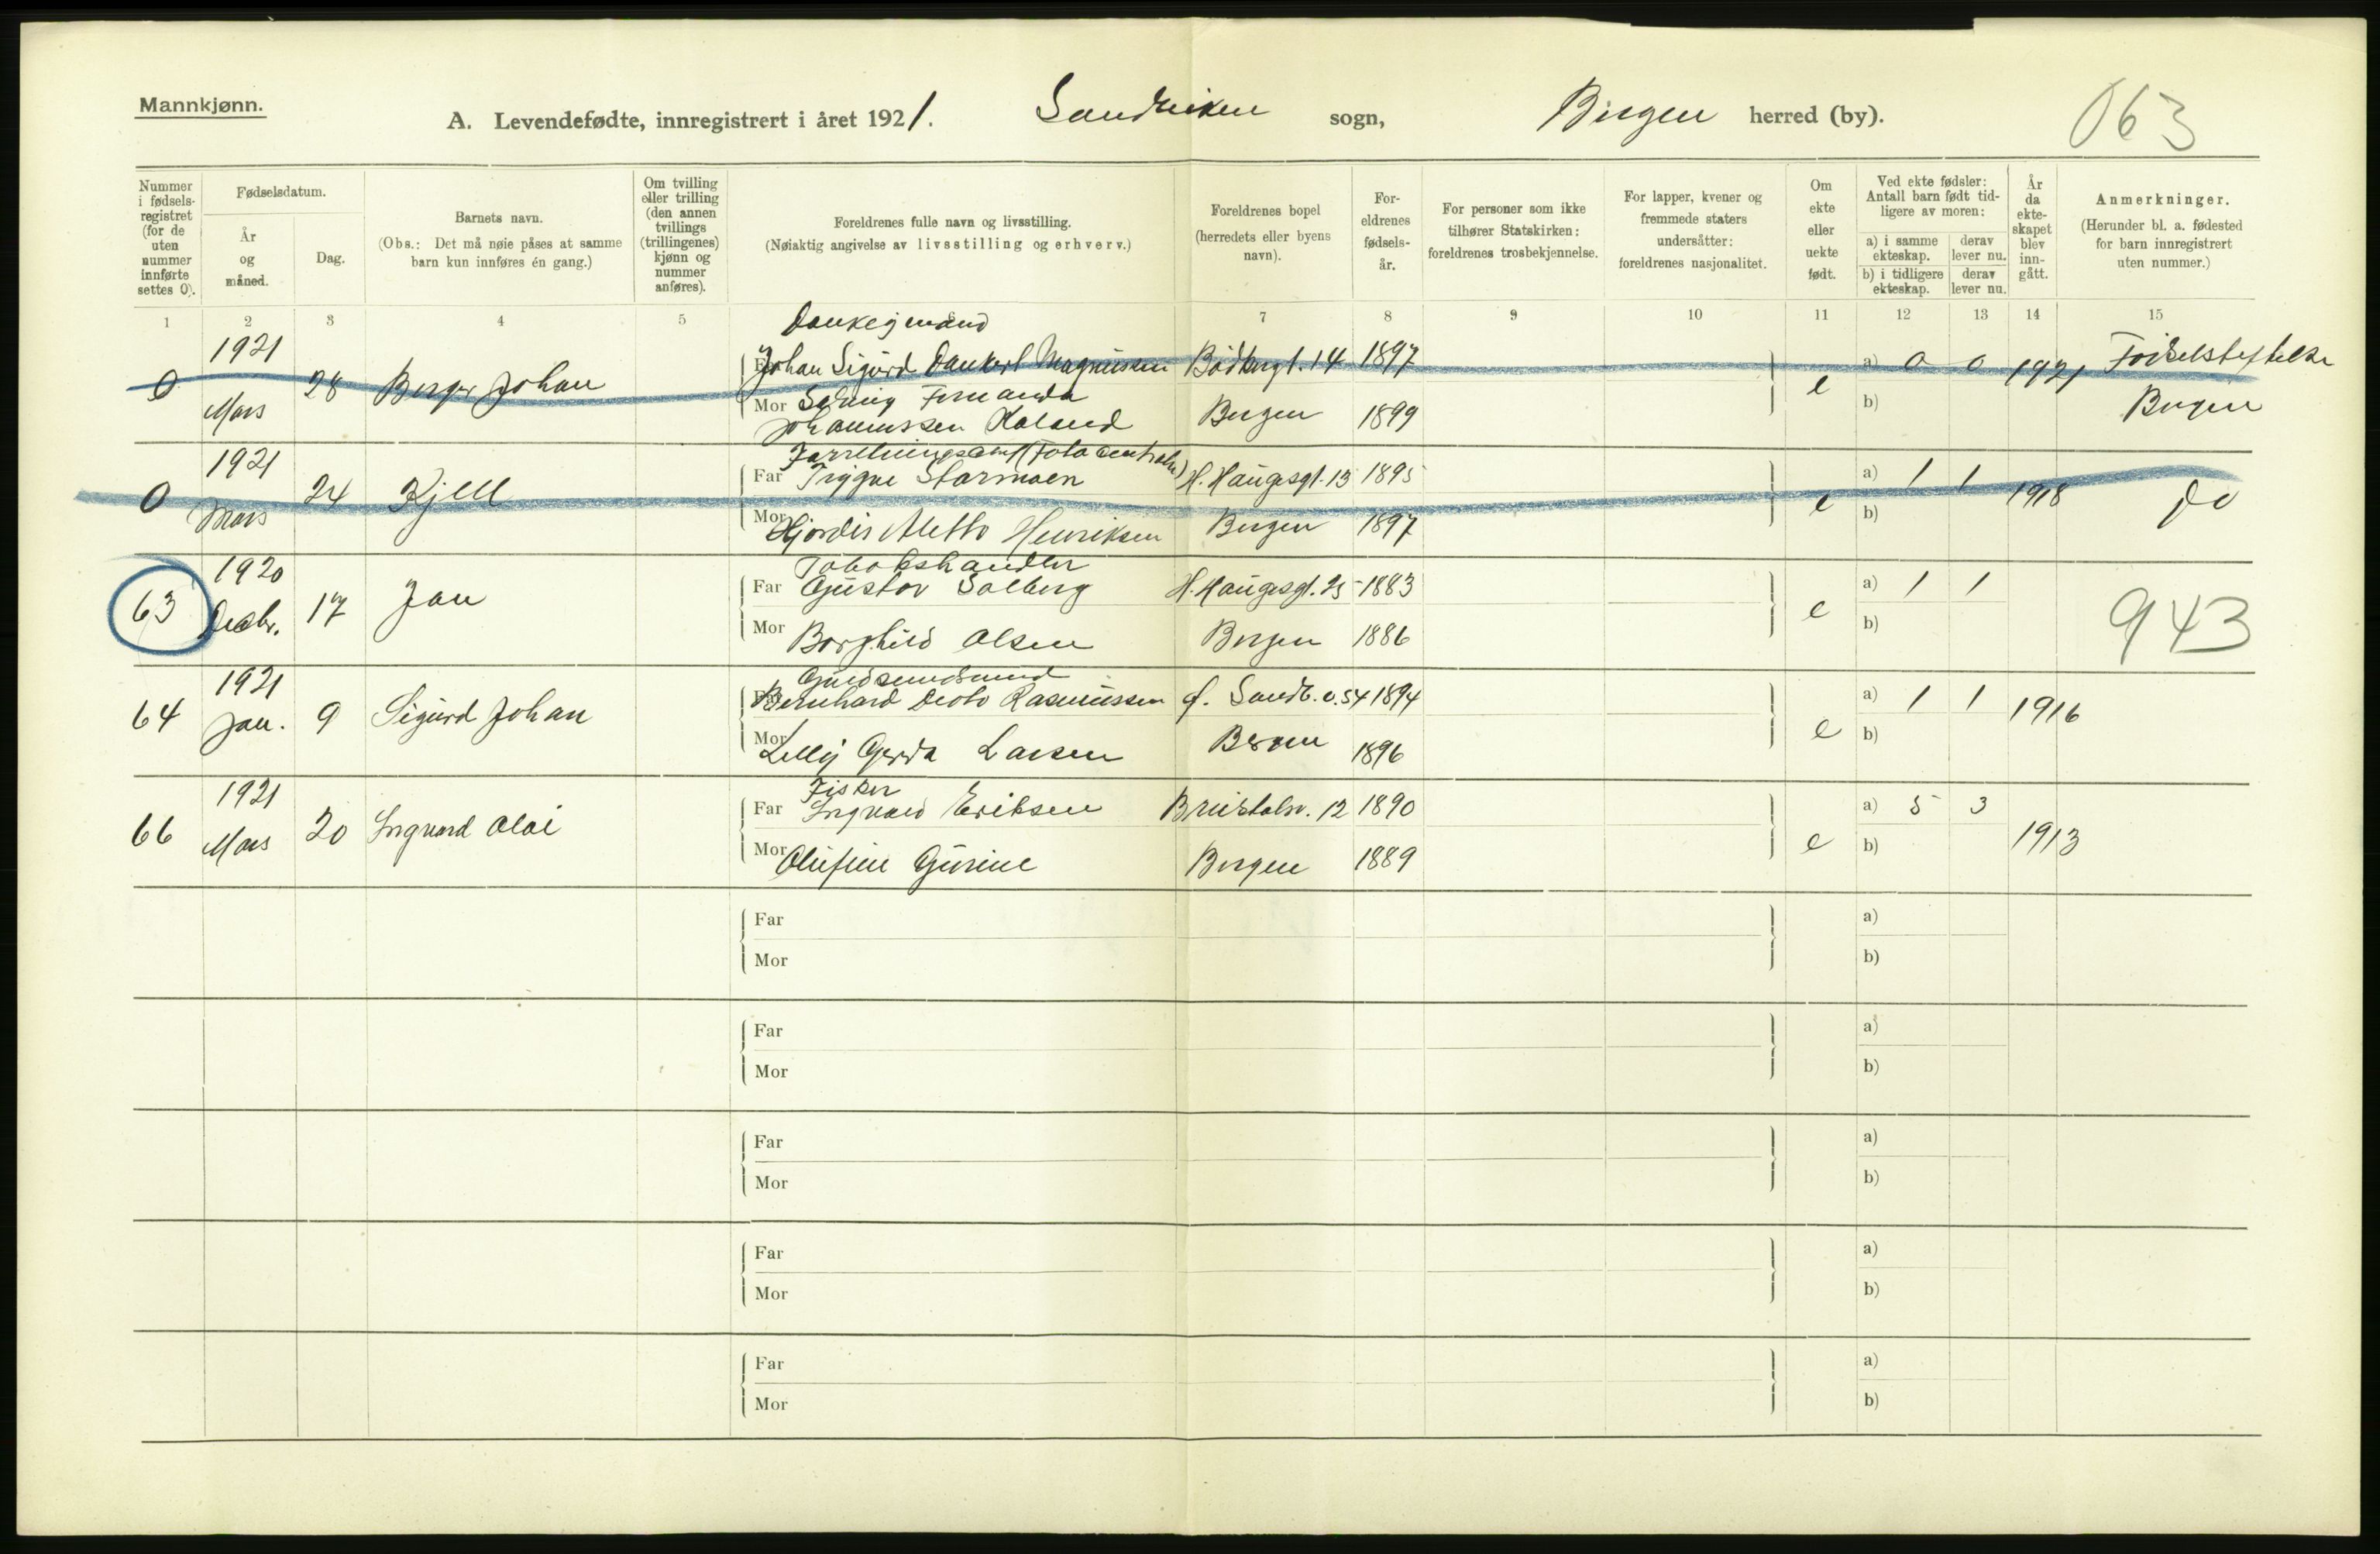 Mannkjønn.
A. Levendefødte, innregistrert i året 1921. Sandviken sogn, Bergen herred (by). 063
Nummer i fødselsregistret (for de uten nummer innførte settes 0).
Fødselsdatum.
År og måned.
Dag.
Barnets navn.
(Obs.: Det må nøie påses at samme barn kun innføres én gang.)
Om tvilling eller trilling (den annen tvillings (trillingenes) kjønn og nummer anføres).
Foreldrenes fulle navn og livsstilling.
(Nøiaktig angivelse av livsstilling og erhverv.)
Foreldrenes bopel (herredets eller byens navn).
Foreldrenes fødselsår.
For personer som ikke tilhører Statskirken: foreldrenes trosbekjennelse.
For lapper, kvener og fremmede staters undersåtter: foreldrenes nasjonalitet.
Om ekte eller uekte født.
Ved ekte fødsler: Antall barn født tidligere av moren:
a) i samme ekteskap. derav lever nu.
b) i tidligere ekteskap. derav lever nu.
År da ekteskapet blev inngått.
Anmerkninger.
(Herunder bl. a. fødested for barn innregistrert uten nummer.)
1 2 3 4 5 7 8 9 10 11 12 13 14 15
Donkeymand
0 1921 Mars 28 Berger Johan
Far Johan Sigurd Dankert Magnussen Bødkergt. 14 1897 e a) 0 0 1921 Fødselsstiftelse
Mor Solveig Fernanda Bergen 1899 b) Bergen
Johannessen Haland
0 1921 Mars 24 Kjell
Far Trygve Starmoen H. Haugesgt. 13 1895 e a) 1 1 1918 do
Mor Hjördis Henriksen Bergen 1897 b)
Tobakshandler
63 1920 Decbr. 17 Jan
Far Gustav Solberg H. Haugesgt. 25 1883 e a) 1 1 943
Mor Borghild Olsen Bergen 1886 b)
64 1921 Jan. 9 Sigurd Johan
Far Bernhard Rasmussen Sandv. 54 1894 e a) 1 1 1916
Mor Lilly Gerda Larsen Bergen 1896 b)
Fisker
66 1921 Mars 20 Ingvard Olai
Far Ingvald Eriksen 12 1890 e a) 5 3 1913
Mor Olufine Gurine Bergen 1889 b)
Far a)
Mor b)
Far a)
Mor b)
Far a)
Mor b)
Far a)
Mor b)
Far a)
Mor b)